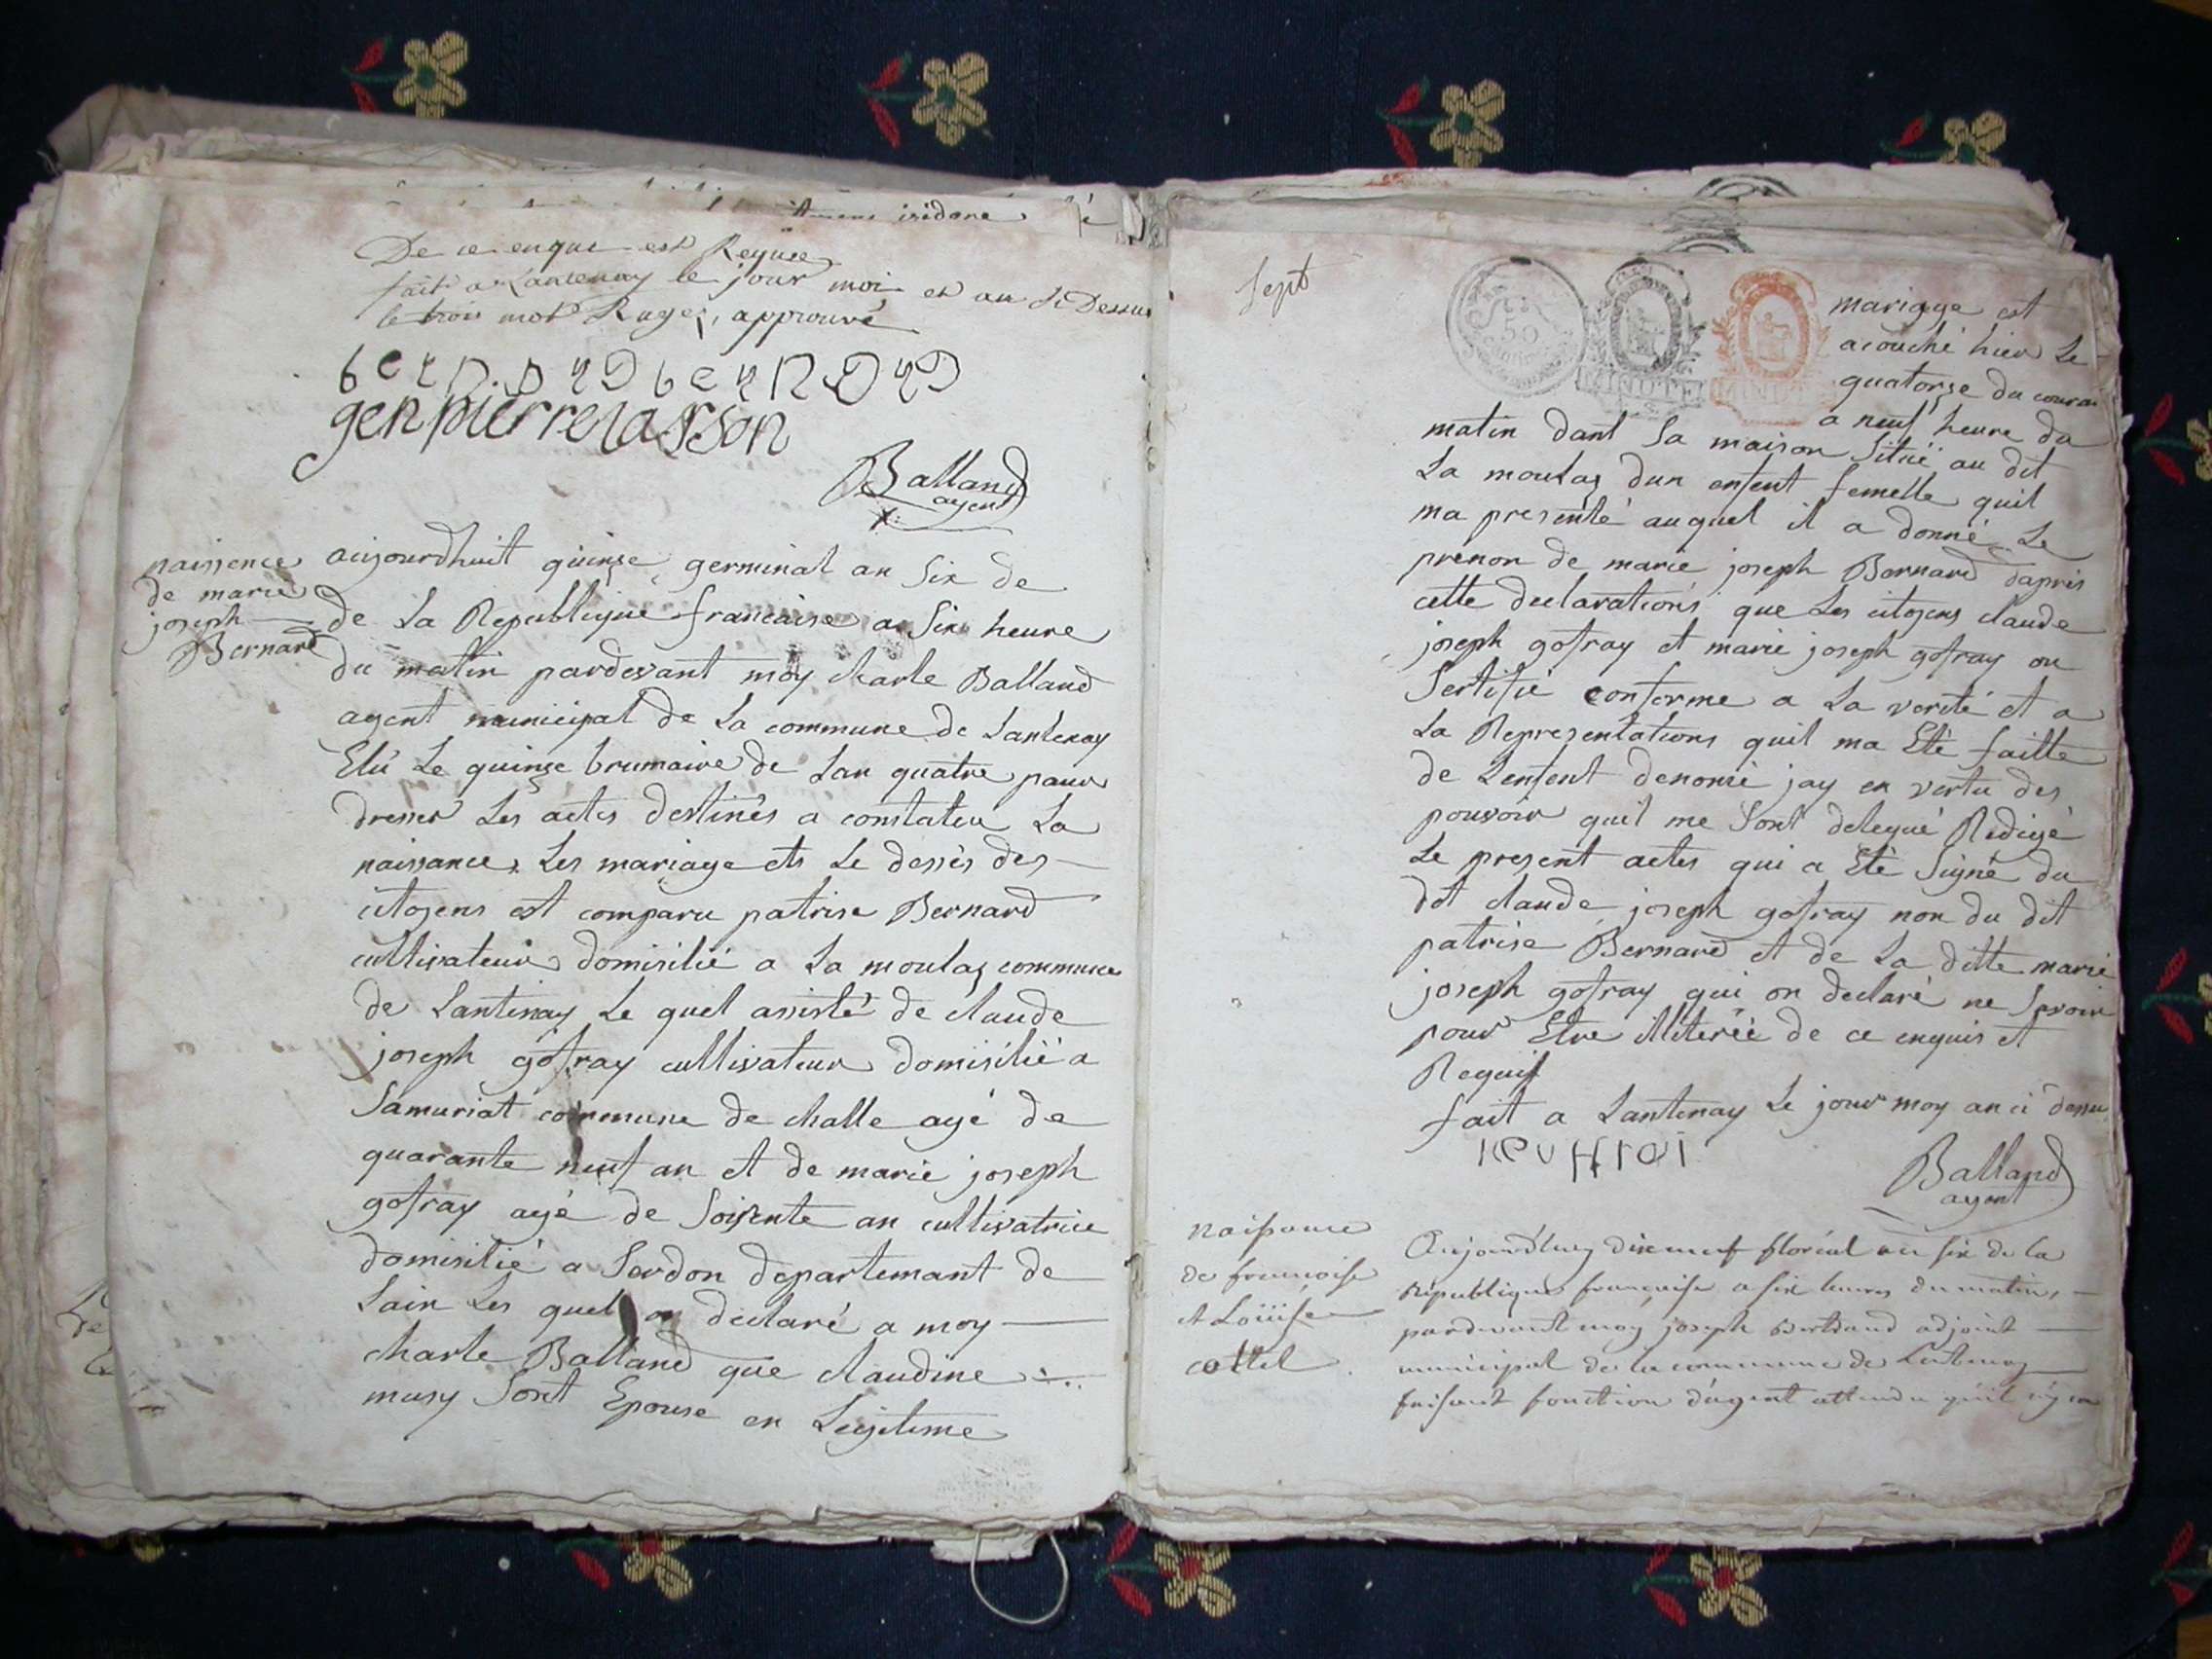 isidore
De ce enquis est Requise
fait a Lantenay le jour moi et an si Dessus
le trois mot Rayé, approuvé
bernard bernard
gen pierre larson
Balland
agent
naissence
de marie
joseph
Bernard
aujourdhuit quinze germinal an Six de
de La Republique francaise a Six heure
du matin pardevant moy charle Balland
agent municipal de La commune de Lantenay
Elû Le quinze brumaire de Lan quatre pour
dresser Les actes destinés a constater La
naissance, Les mariage ets Le dessès des
citoyens est comparu patrise Bernard
cultivateur domisilié a La moulaz commune
de Lantenay Le quel assisté de claude
joseph gofray cultivateur domisilié a
Samuriat commune de challe agé de
quarante neuf an et de marie joseph
gofray agé de Soixente an cultivatrice
domisilié a Serdon departemant de
Lain Les quel on déclaré a moy
charle Balland que claudine
musy Sont Epouse en Legitime
Sept
50
MINUTE
mariage est
acouché hier Le
quatorze du coura
a neuf heure du
matin dant Sa maison Situé au dit
La moulaz dun enfent femelle quil
ma presenté auquel il a donné Le
prenon de marie joseph Bernard dapris
cette declarations que Les citoyens claude
joseph gofray et marie joseph gofray on
Sertifié conforme a La verité et a
La Representations quil ma Eté faitte
de Lenfent denomé jay en vertu des
pouvoir quil me Sont delegué Redigé
Le present actes qui a Eté Signé du
dit claude joseph gofray non du dit
patrise Bernard et de La ditte marie
joseph gofray qui on declaré ne Savoir
pour Etre illiterée de ce enquis et
Requis
fait a Lantenay Le jour moy an ci dessu
Balland
agent
naissance
de francoise
et Louise
cottel
Aujourd'huy dixneuf floréal an six de la
République française a six heures du matin,
pardevant moy joseph Bertrand adjoint
municipal de la commune de Lantenay
faisant fonction d'agent attendu qu'il n'y en